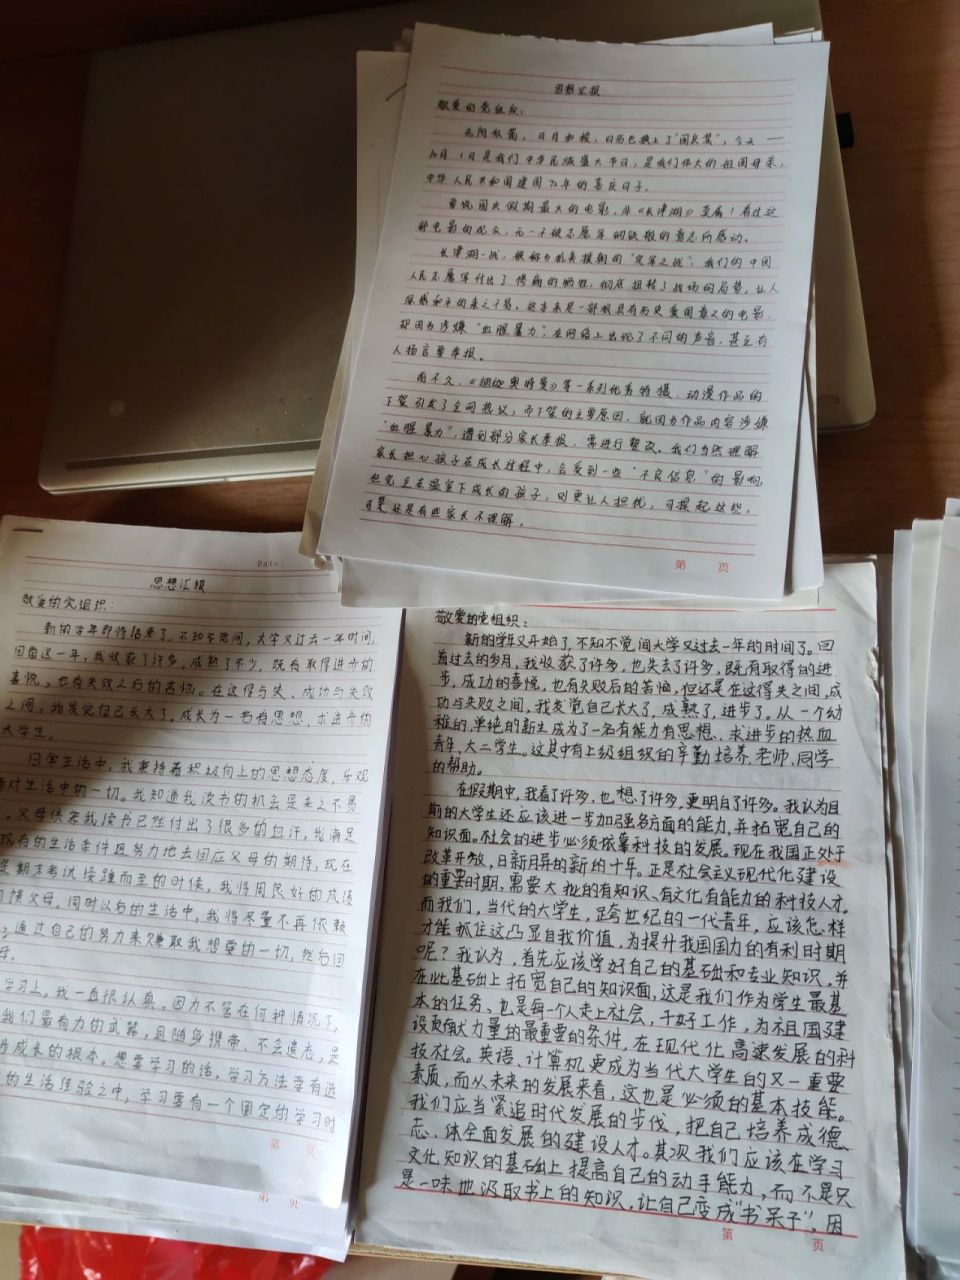 思想汇报
敬爱的党组织：
光阴似箭，日月如梭，日历也换上了“国庆装”，今天——
10月1日是我们中华民族盛大节日，是我们伟大的祖国母亲，
中华人民共和国建国72年的喜庆日子。
要说国庆假期最大的电影，当《长津湖》莫属！看过这
部电影的观众，无一不被志愿军钢铁般的意志所感动。
长津湖一战，被称为抗美援朝的“定军之战”，我们的中国
人民志愿军付出了惨痛的牺牲，彻底扭转了战场的局势，让人
深感和平的来之不易。这本来是一部很具有历史爱国意义的电影，
却因为涉嫌“血腥暴力”，在网络上出现了不同的声音，甚至有
人扬言要举报。
前不久，《迪迦奥特曼》等一系列优秀特摄、动漫作品的
下架引发了全网热议，而下架的主要原因，就因为作品内容涉嫌
“血腥暴力”，遭到部分家长举报，需进行整改。我们当然理解
家长担心孩子在成长过程中，会受到一些“不良信息”的影响
但完全在温室下成长的孩子，则更让人担忧，可提起这些，
可是还是有些家长不理解。
第 页
Date:
思想汇报
敬爱的党组织：
新的学年即将结束了，不知不觉间，大学又过去一年时间，
回首这一年，我收获了许多，成熟了不少，既有取得进步的
喜悦，也有失败之后的苦恼。在这得与失、成功与失败
之间，我发觉自己长大了，成长为一名有思想、求进步的
大学生。
日常生活中，我秉持着积极向上的思想态度，乐观
面对生活中的一切。我知道我读书的机会是来之不易
，父母供我读书已然付出了很多的血汗，我满足
现有的生活条件且努力地去回应父母的期待，现在
是期末考试接踵而至的时候，我将用良好的成绩
回馈父母。同时以后的生活中，我将尽量不再依赖
，通过自己的努力来赚取我想要的一切，然后回
母。
学习上，我一直很认真，因为不管在何种情况下，
我们最有力的武器，且随身携带、不会遗忘，是
为成长的根本。想要学习的话，学习方法要有选
的生活经验之中，学习要有一个固定的学习时
第 页
第 页
敬爱的党组织：
新的学年又开始了，不知不觉间大学又过去一年的时间了。回
首过去的岁月，我收获了许多，也失去了许多，既有取得的进
步，成功的喜悦，也有失败后的苦恼，但还是在这得失之间，成
功与失败之间，我发觉自己长大了，成熟了，进步了。从一个幼
稚的，单纯的新生成为了一名有能力有思想、求进步的热血
青年，大二学生。这其中有上级组织的辛勤培养，老师，同学
的帮助。
在假期中，我看了许多，也想了许多，更明白了许多。我认为目
前的大学生还应该进一步加强各方面的能力，并拓宽自己的
知识面。社会的进步必须依靠科技的发展。现在我国正处于
改革开放，日新月异的新的十年。正是社会主义现代化建设
的重要时期，需要大批的有知识、有文化有能力的科技人才。
而我们，当代的大学生，正跨世纪的一代青年，应该怎样
才能抓住这凸显自我价值，为提升我国国力的有利时期
呢？我认为，首先应该学好自己的基础和专业知识，并
在此基础上拓宽自己的知识面，这是我们作为学生最基
本的任务，也是每个人走上社会，干好工作，为祖国建
设贡献力量的最重要的条件，在现代化高速发展的科
技社会。英语、计算机更成为当代大学生的又一重要
素质，而从未来的发展来看，这也是必须的基本技能。
我们应当紧追时代发展的步伐，把自己培养成德、
志、体全面发展的建设人才。其次我们应该在学习
文化知识的基础上提高自己的动手能力，而不是只
是一味地汲取书上的知识，让自己变成“书呆子”，因
第 页